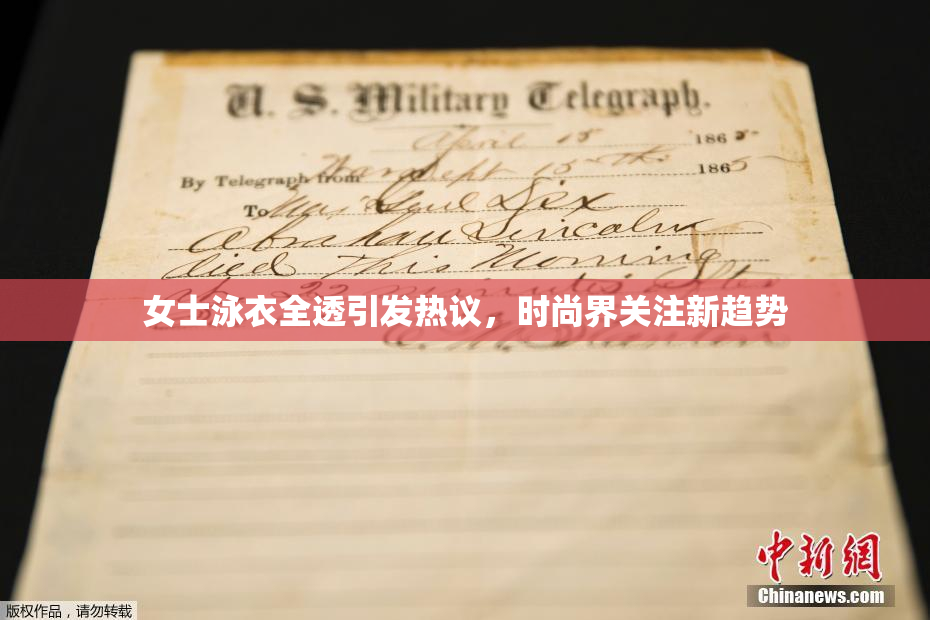 U. S. Military Telegraph.
April 15 1865
By Telegraph from War Dept 15th 1865
To Maj Genl Dix
Abraham Lincoln
died This Morning
22 minutes after
女士泳衣全透引发热议，时尚界关注新趋势
E. M. Stanton
中新网
Chinanews.com
版权作品，请勿转载